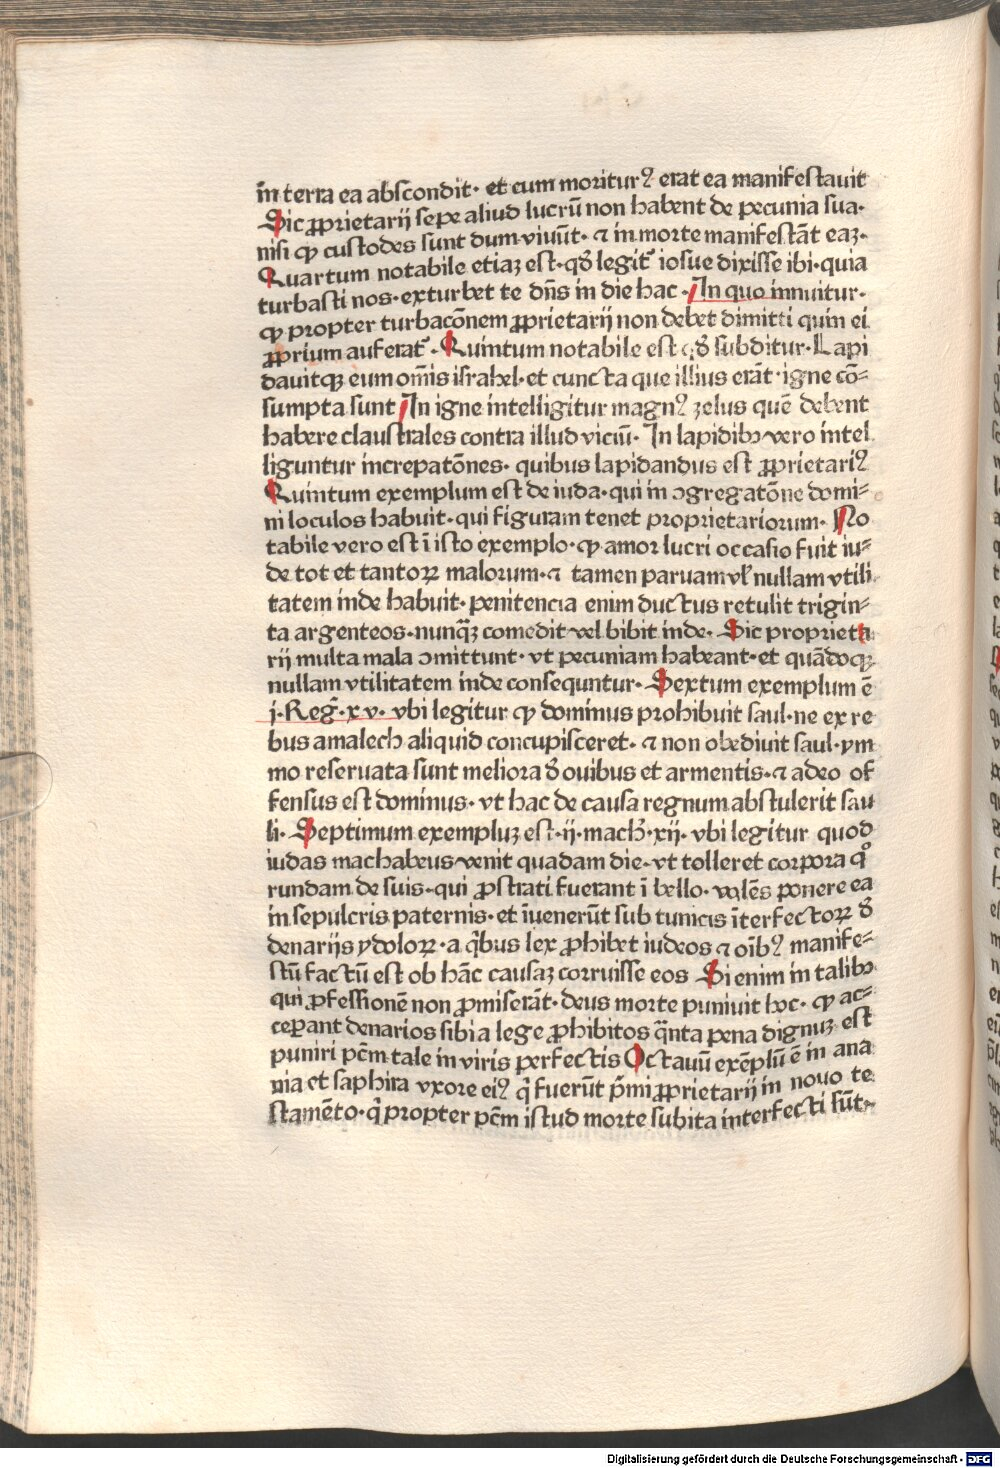 in terra ea abscondit· et cum moriturꝰ erat ea manifestauit
Sic ꝓprietarij sepe aliud lucrū non habent de pecunia sua·
nisi ꝙ custodes sunt dum viuūt· ⁊ in morte manifestāt eaꝫ·
Quartum notabile etiaꝫ est· qđ legit᷑ iosue dixisse ibi· quia
turbasti nos· exturbet te dn̄s in die hac· In quo innuitur·
ꝙ propter turbacōnem ꝓprietarij non debet dimitti quin ei
ꝓprium auferat᷑· Quintum notabile est qđ subditur· Lapi
dauitqꝫ eum om̄is israhel· et cuncta que illius erāt· igne cō⸗
sumpta sunt In igne intelligitur magnꝰ zelus quē debent
habere claustrales contra illud viciū· In lapidibꝫ vero intel
liguntur increpatōnes· quibus lapidandus est ꝓprietariꝰ
Quintum exemplum est de iuda· qui in ↄgregatōne domi⸗
ni loculos habuit· qui figuram tenet proprietariorum· No
tabile vero est ī isto exemplo· ꝙ amor lucri occasio fuit iu⸗
de tot et tantoꝝ malorum· ⁊ tamen paruam vl̓ nullam vtili
tatem inde habuit· penitencia enim ductus retulit trigin⸗
ta argenteos· nunqꝫ̄ comedit vel bibit inde· Sic proprieta
rij multa mala ↄmittunt· vt pecuniam habeant· et quādocꝫ
nullam vtilitatem inde consequntur· Sextum exemplum ē
j· Reg̓· xv· vbi legitur ꝙ dominus prohibuit saul· ne ex re
bus amalech aliquid concupisceret· ⁊ non obediuit saul· ym
mo reseruata sunt meliora đ ouibus et armentis· ⁊ adeo of
fensus est dominus· vt hac de causa regnum abstulerit sau
li· Septimum exempluꝫ est· ij· mach̓· xij· vbi legitur quod
iudas machabeus venit quadam die· vt tolleret corpora qͦ
rundam de suis· qui ꝓstrati fuerant ī bello· volēs ponere ea
in sepulcris paternis· et īuenerūt sub tunicis īterfectoꝝ đ
denarijs ydoloꝝ· a qͥbus lex ꝓhibet iudeos ⁊ oībꝰ manife⸗
stū factū est ob hāc causaꝫ corruisse eos Si enim in talibꝫ
qui ꝓfessionē non ꝓmiserāt· deus morte puniuit hoc· ꝙ ac⸗
ceꝑant denarios sibi a lege ꝓhibitos qͣnta pena dignuꝫ est
puniri pc̄m tale in viris perfectis Octauū exēplū ē in ana
nia et saphira vxore eiꝰ qͥ fuerūt pͥmi ꝓprietarij in nouo te
stamēto· qͥ propter pc̄m istud morte subita interfecti sūt·
Digitalisierung gefördert durch die Deutsche Forschungsgemeinschaft - DFG